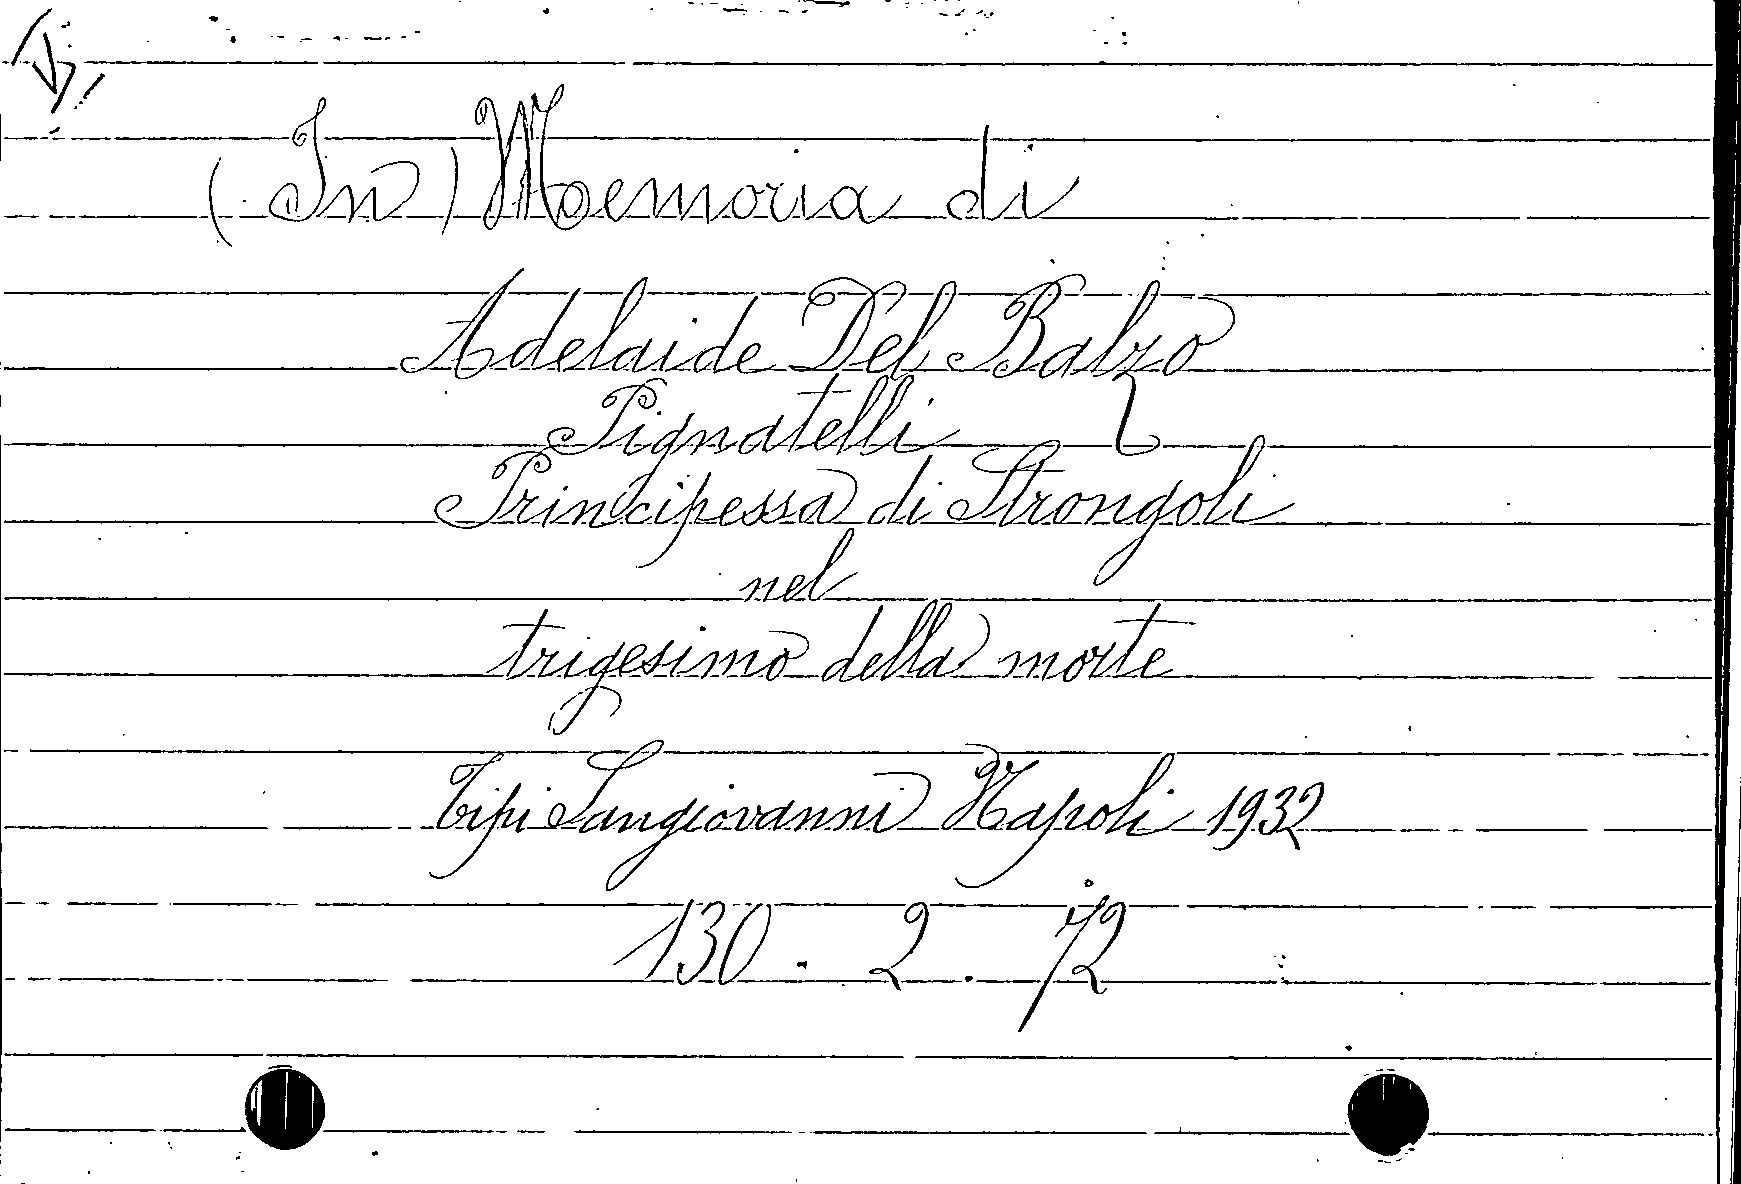 (In) Memoria di
Adelaide Del Balzo
Pignatelli
Principessa di Strongoli
nel
trigesimo della morte
Tipi Sangiovanni Napoli 1932
130. 2. 72